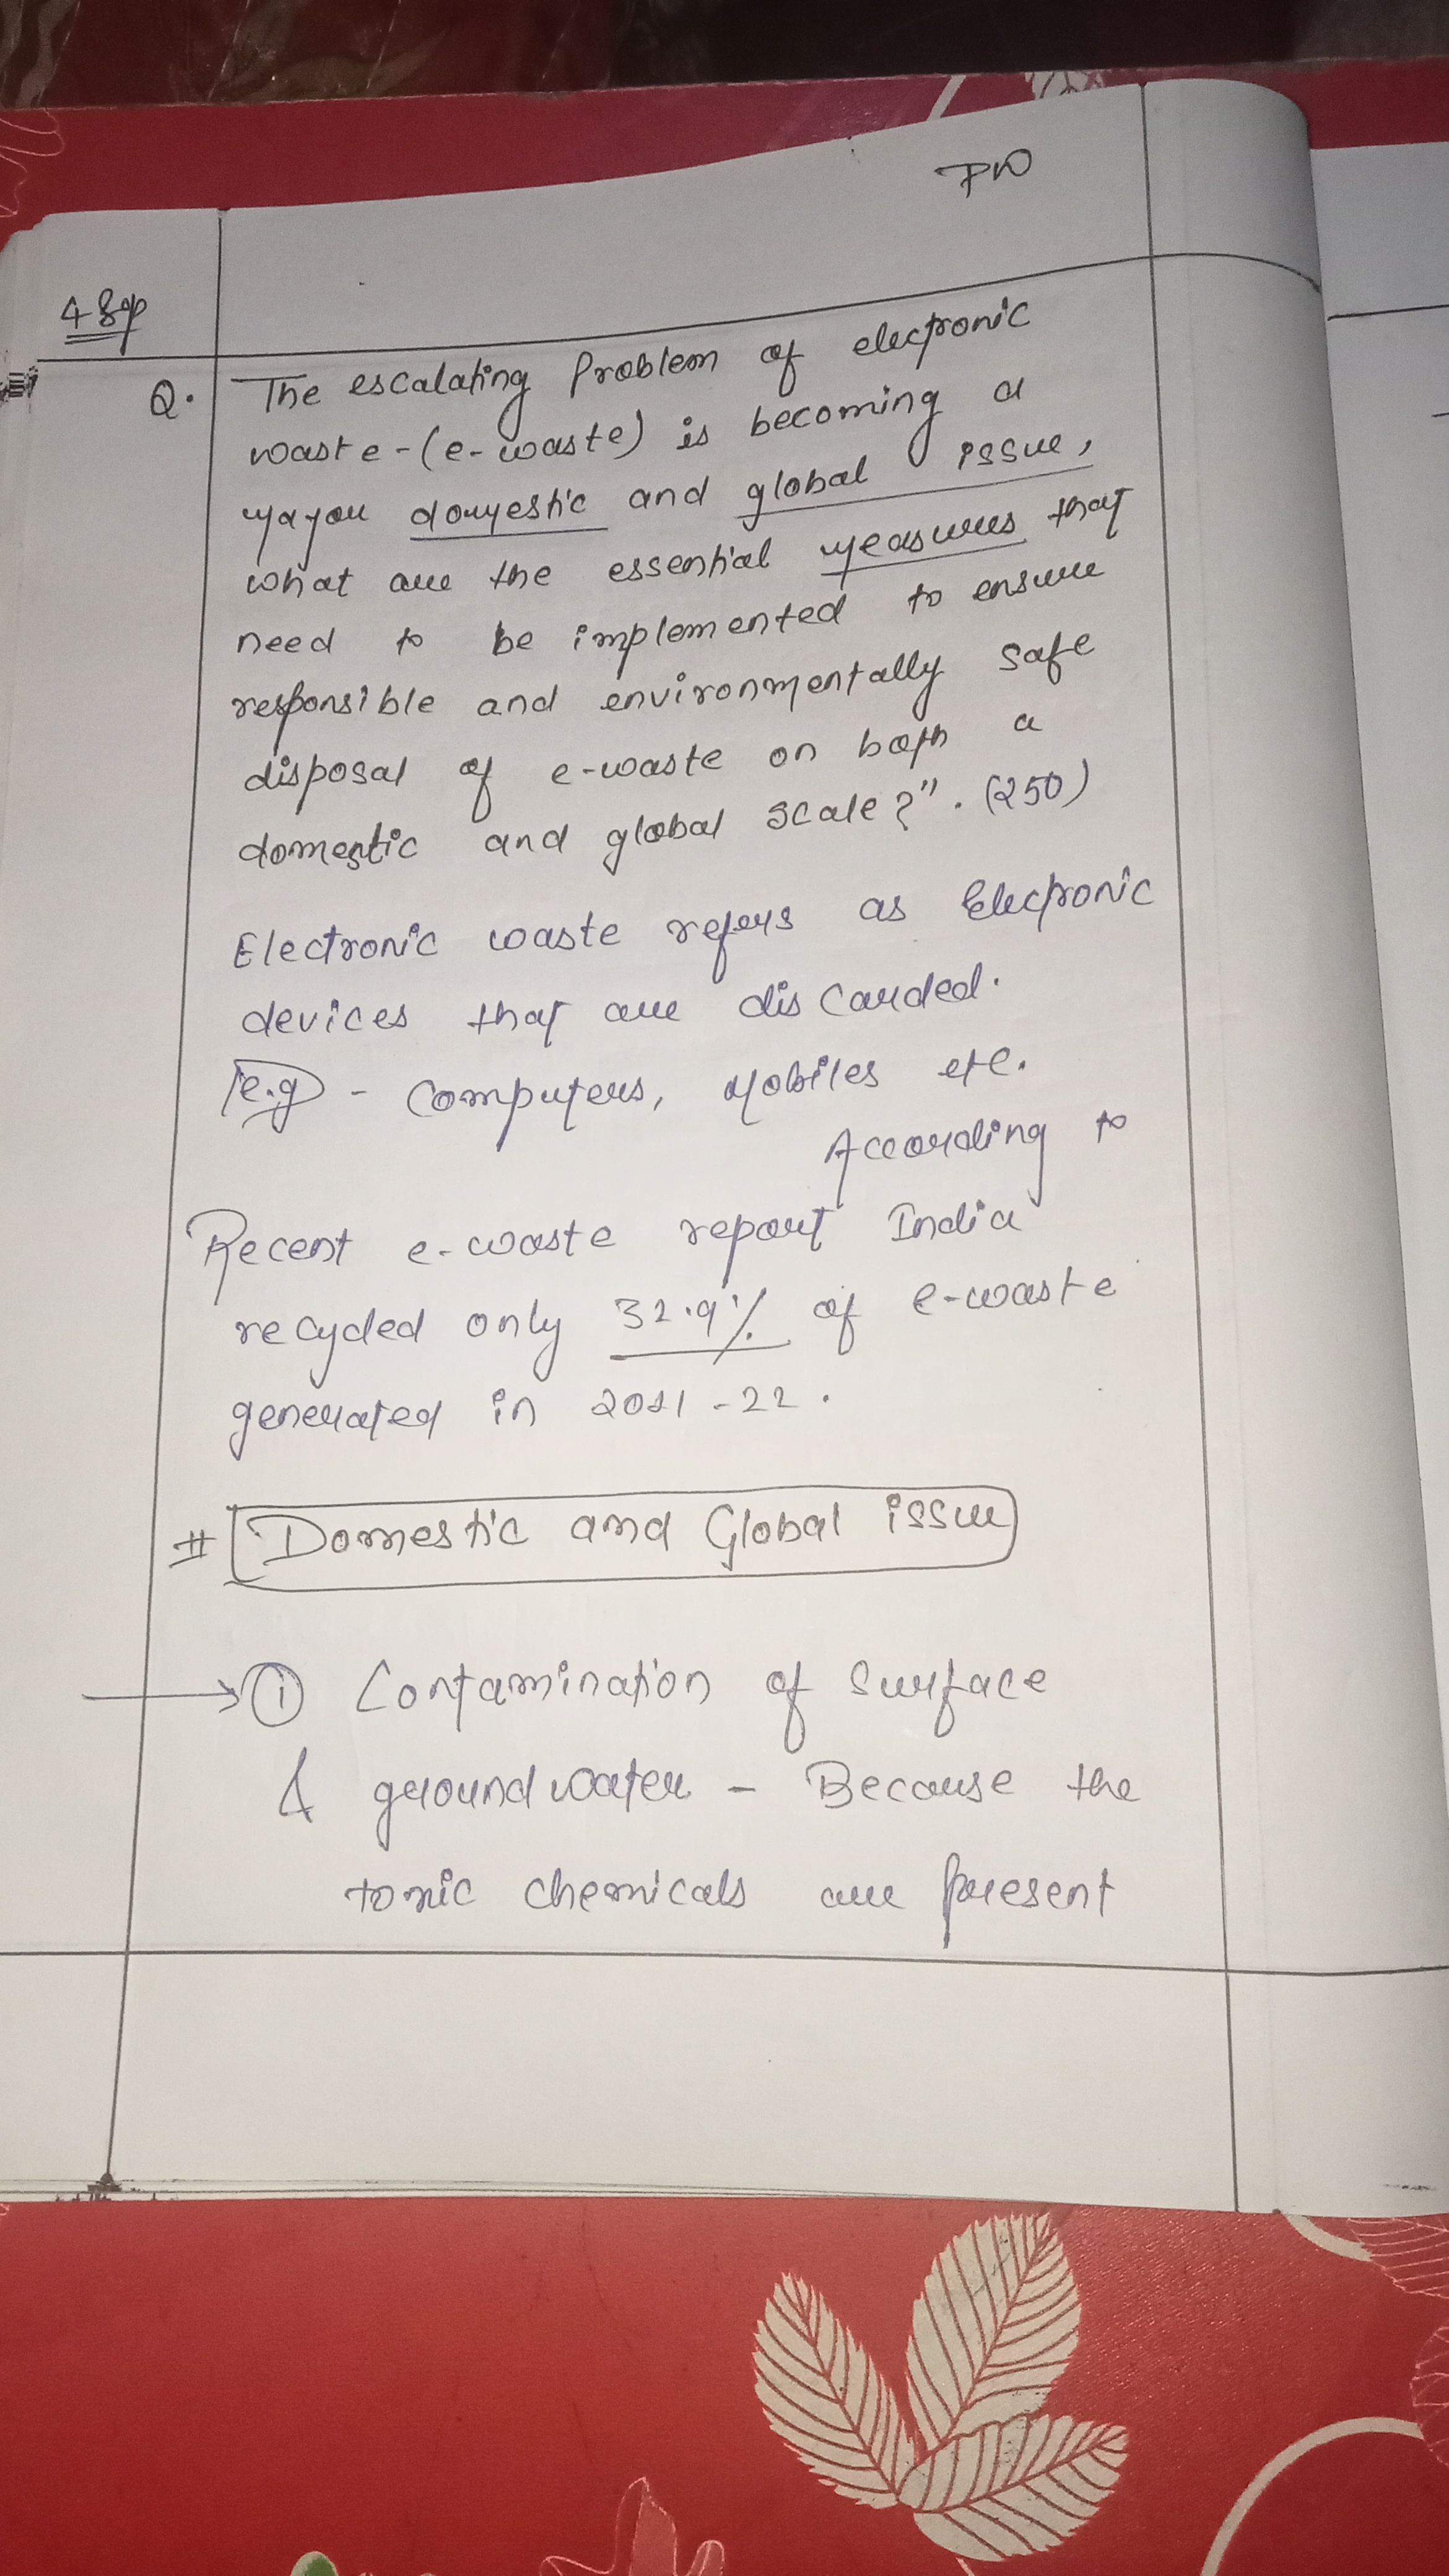 PW
4 Sep
Q. The escalating Problem of electronic
waste-(e-waste) is becoming a
major domestic and global issue,
what are the essential measures that
need to be implemented to ensure
responsible and environmentally safe
disposal of e-waste on both a
domestic and global scale?". (250)
Electronic waste refers as Electronic
devices that are discarded.
e.g - Computers, Mobiles etc.
According to
Recent e-waste report India
recycled only 32.9% of e-waste
generated in 2021-22.
# Domestic and Global issue
→ ① Contamination of Surface
& groundwater - Because the
toxic chemicals are present